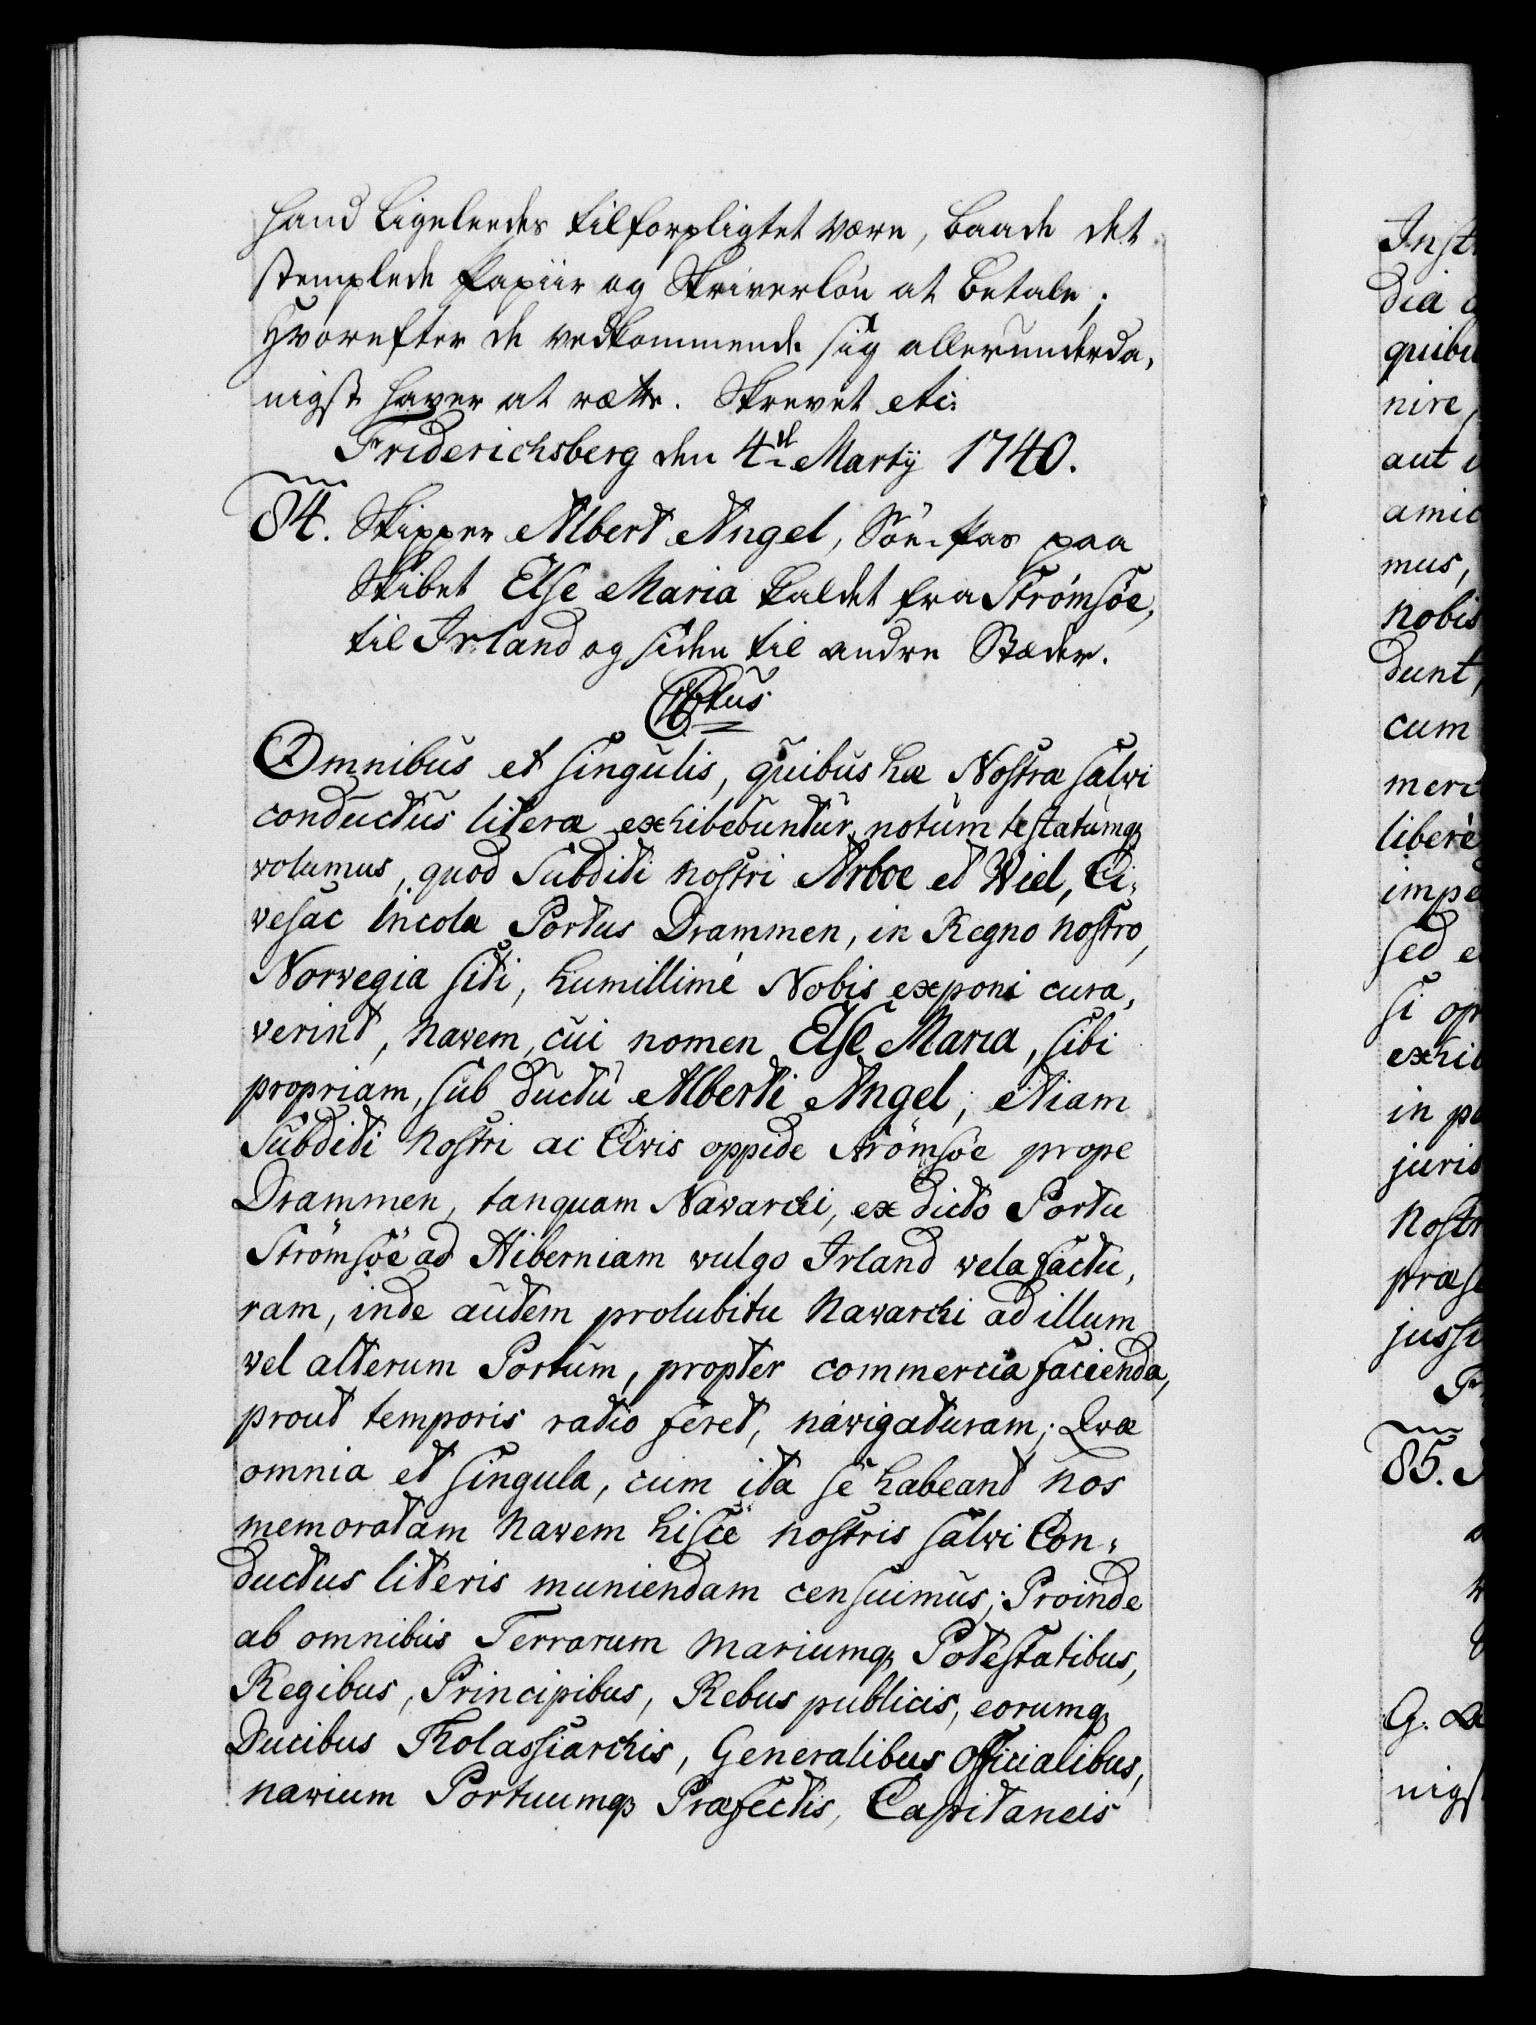 hand ligeleedes tilforpligtet være, baade det
stemplede Papiir og Skriverløn at betale;
Hvorefter de vedkommende sig allerunderda-
nigst haver at rætte. Skrevet etc:
Friderichsberg den 4de Martij 1740.
84. Skipper Albert Angel, Söe-Pas paa
Skibet Else Maria kaldet fra Strömsöe,
til Irland og siden til andre Stæder.
Omnibus et singulis, quibus hæ Nostræ salvi
conductus literæ exhibebuntur, notum testatumq;
volumus, quod Subditi nostri Arboe et Wiel, Ci-
vesac incola Portus Drammen, in Regno nostro,
Norvegia siti, humillimé Nobis exponi cura-
verint, navem, cui nomen Else Maria, sibi
propriam, sub ductu Alberti Angel, etiam
Subditi nostri ac Civis oppide Strömsöe prope
Drammen, tanquam Navarchi, ex dicto Portu
Strömsöe ad Hiberniam vulgo Irland vela factu-
ram, inde autem prolubitu Navarchi ad illum
vel alterum Portum, propter commercia facienda,
prout temporis ratio feret, navigaturam; Qvæ
omnia et singula, cum ita se habeant nos
memoratam Navem hisce nostris salvi Con-
ductus literis muniendam censuimus; Proinde
ab omnibus Terrarum Mariumq; Potestatibus,
Regibus, Principibus, Rebus publicis, eorumq;
Ducibus Tholassiarchis, Generalibus Officialibus,
navium Portuumq; Præfectis, Capitaneis
Inst
dia
quibu
nire,
aut
amic
mus,
nobis
dunt,
cum
merc
liberè
impe
sed e
si op
exhib
in p
juris
Nostr
præse
jussi
85.
G.
nigst